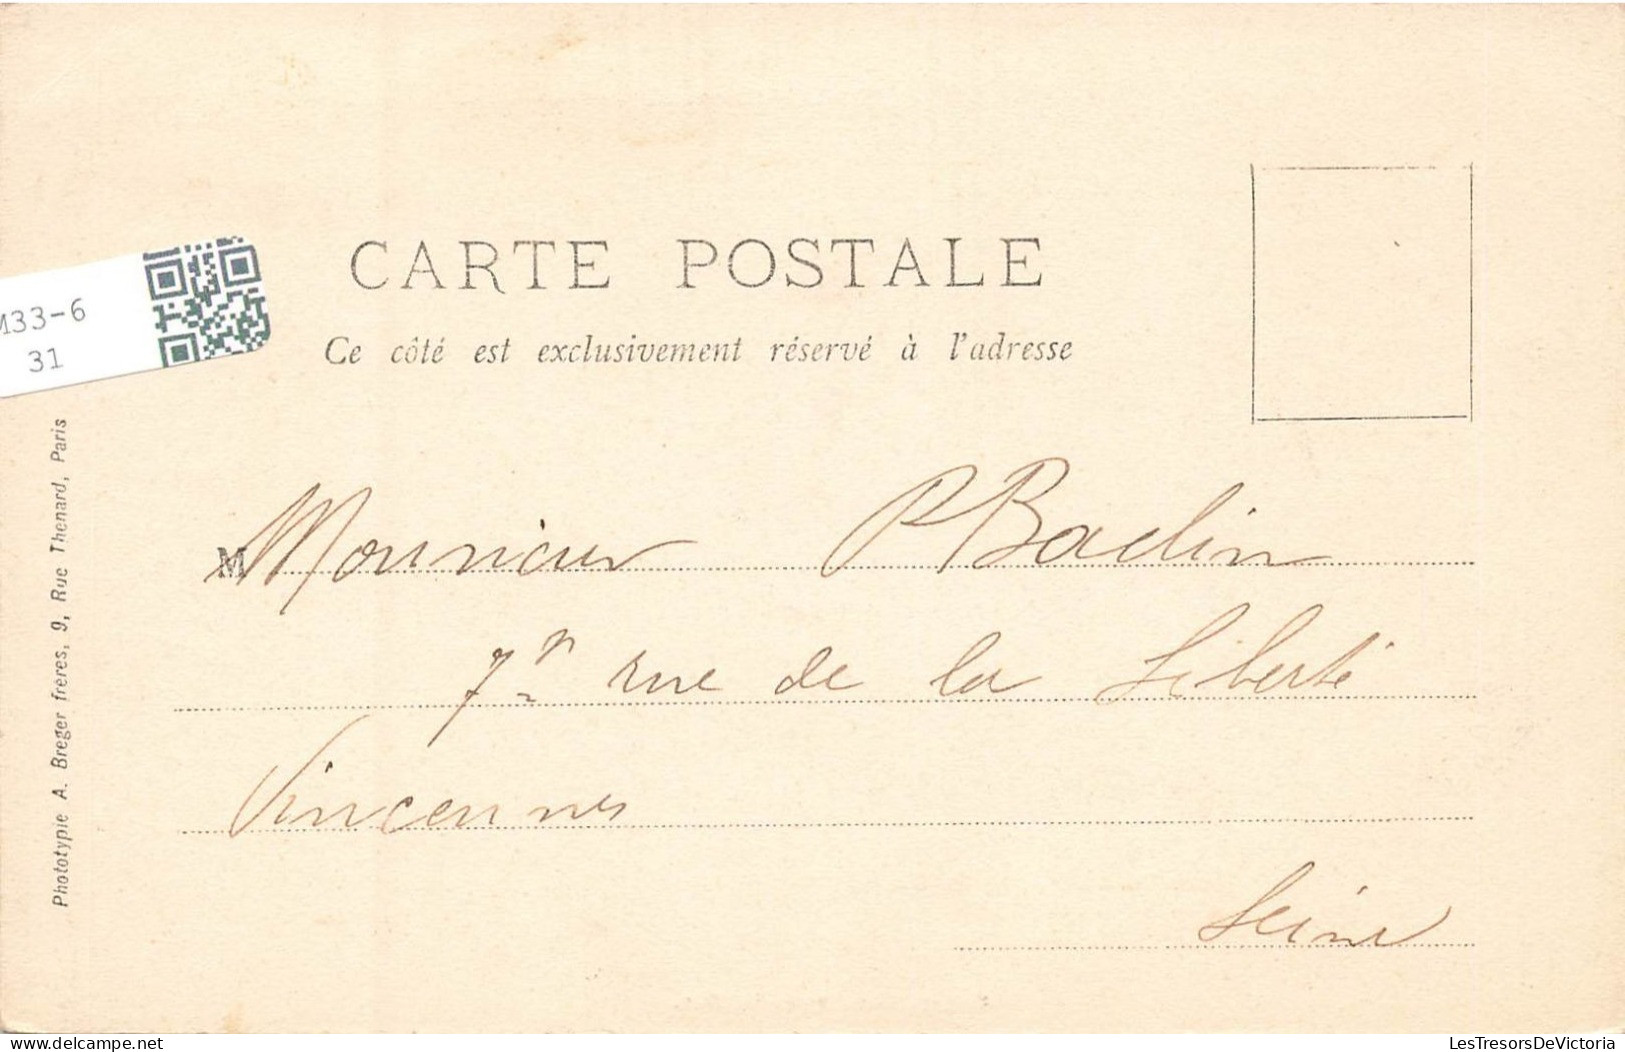 CARTE POSTALE
Ce côté est exclusivement réservé à l'adresse
M33-6
31
Phototypie A. Breger frères, 9, Rue Thenard, Paris
M Monsieur P Badin
7 rue de la Liberté
Vincennes
Seine
delcampe.net
LesTresorsDeVictoria